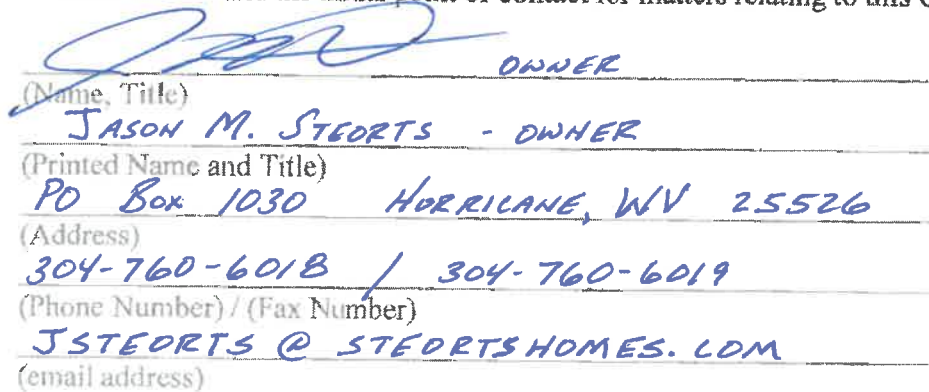 point of contact for matters relating to this
OWNER
(Name, Title)
JASON M. STEORTS - OWNER
(Printed Name and Title)
PO Box 1030 HURRICANE, WV 25526
(Address)
304-760-6018 / 304-760-6019
(Phone Number) / (Fax Number)
JSTEORTS @ STEORTSHOMES.COM
(email address)